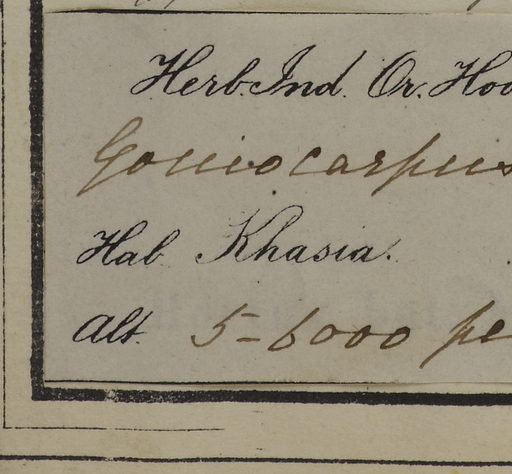 Herb. Ind. Or. Hoo
Goniocarpus
Hab. Khasia.
Alt. 5-6000 pe